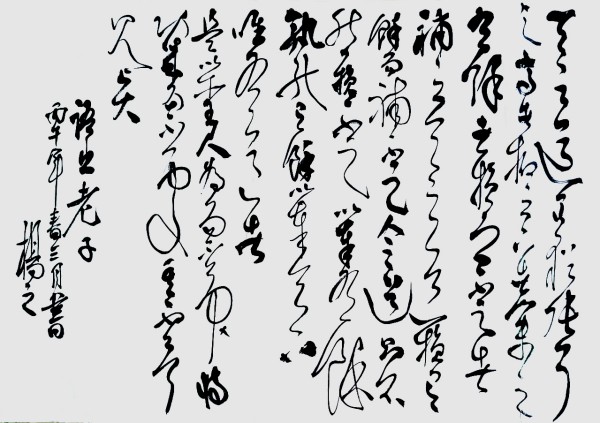 天之道其猶張弓
高者抑之下者舉之
有餘者損之不足者
補之天之道損有
餘而補不足人之道則不
然損不足以奉有餘
孰能有餘以奉天下
唯有道者
是以聖人為而不恃
功成而不處其不欲
見賢
語出老子
年春三月書
楊